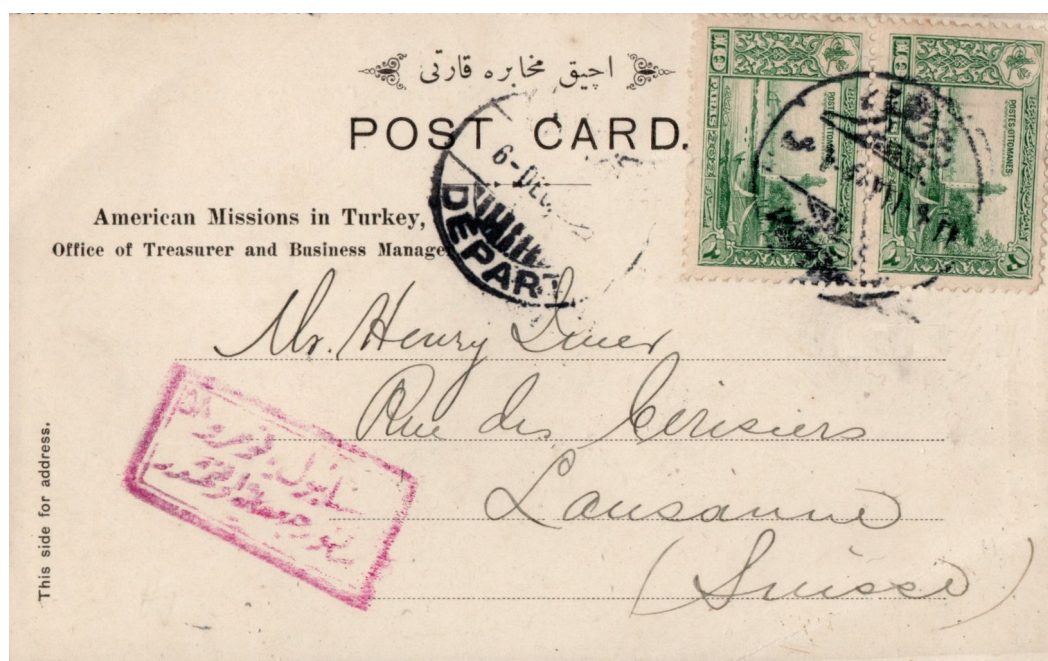 احيق مخابره قارتى
POST CARD.
American Missions in Turkey,
Office of Treasurer and Business Manager
POSTES-OTTOMANES
POSTES-OTTOMANES
10 PARAS
6-DEC
DEPART
Mr. Henry
Rue des Cerisiers
Lausanne
(Suisse)
This side for address.